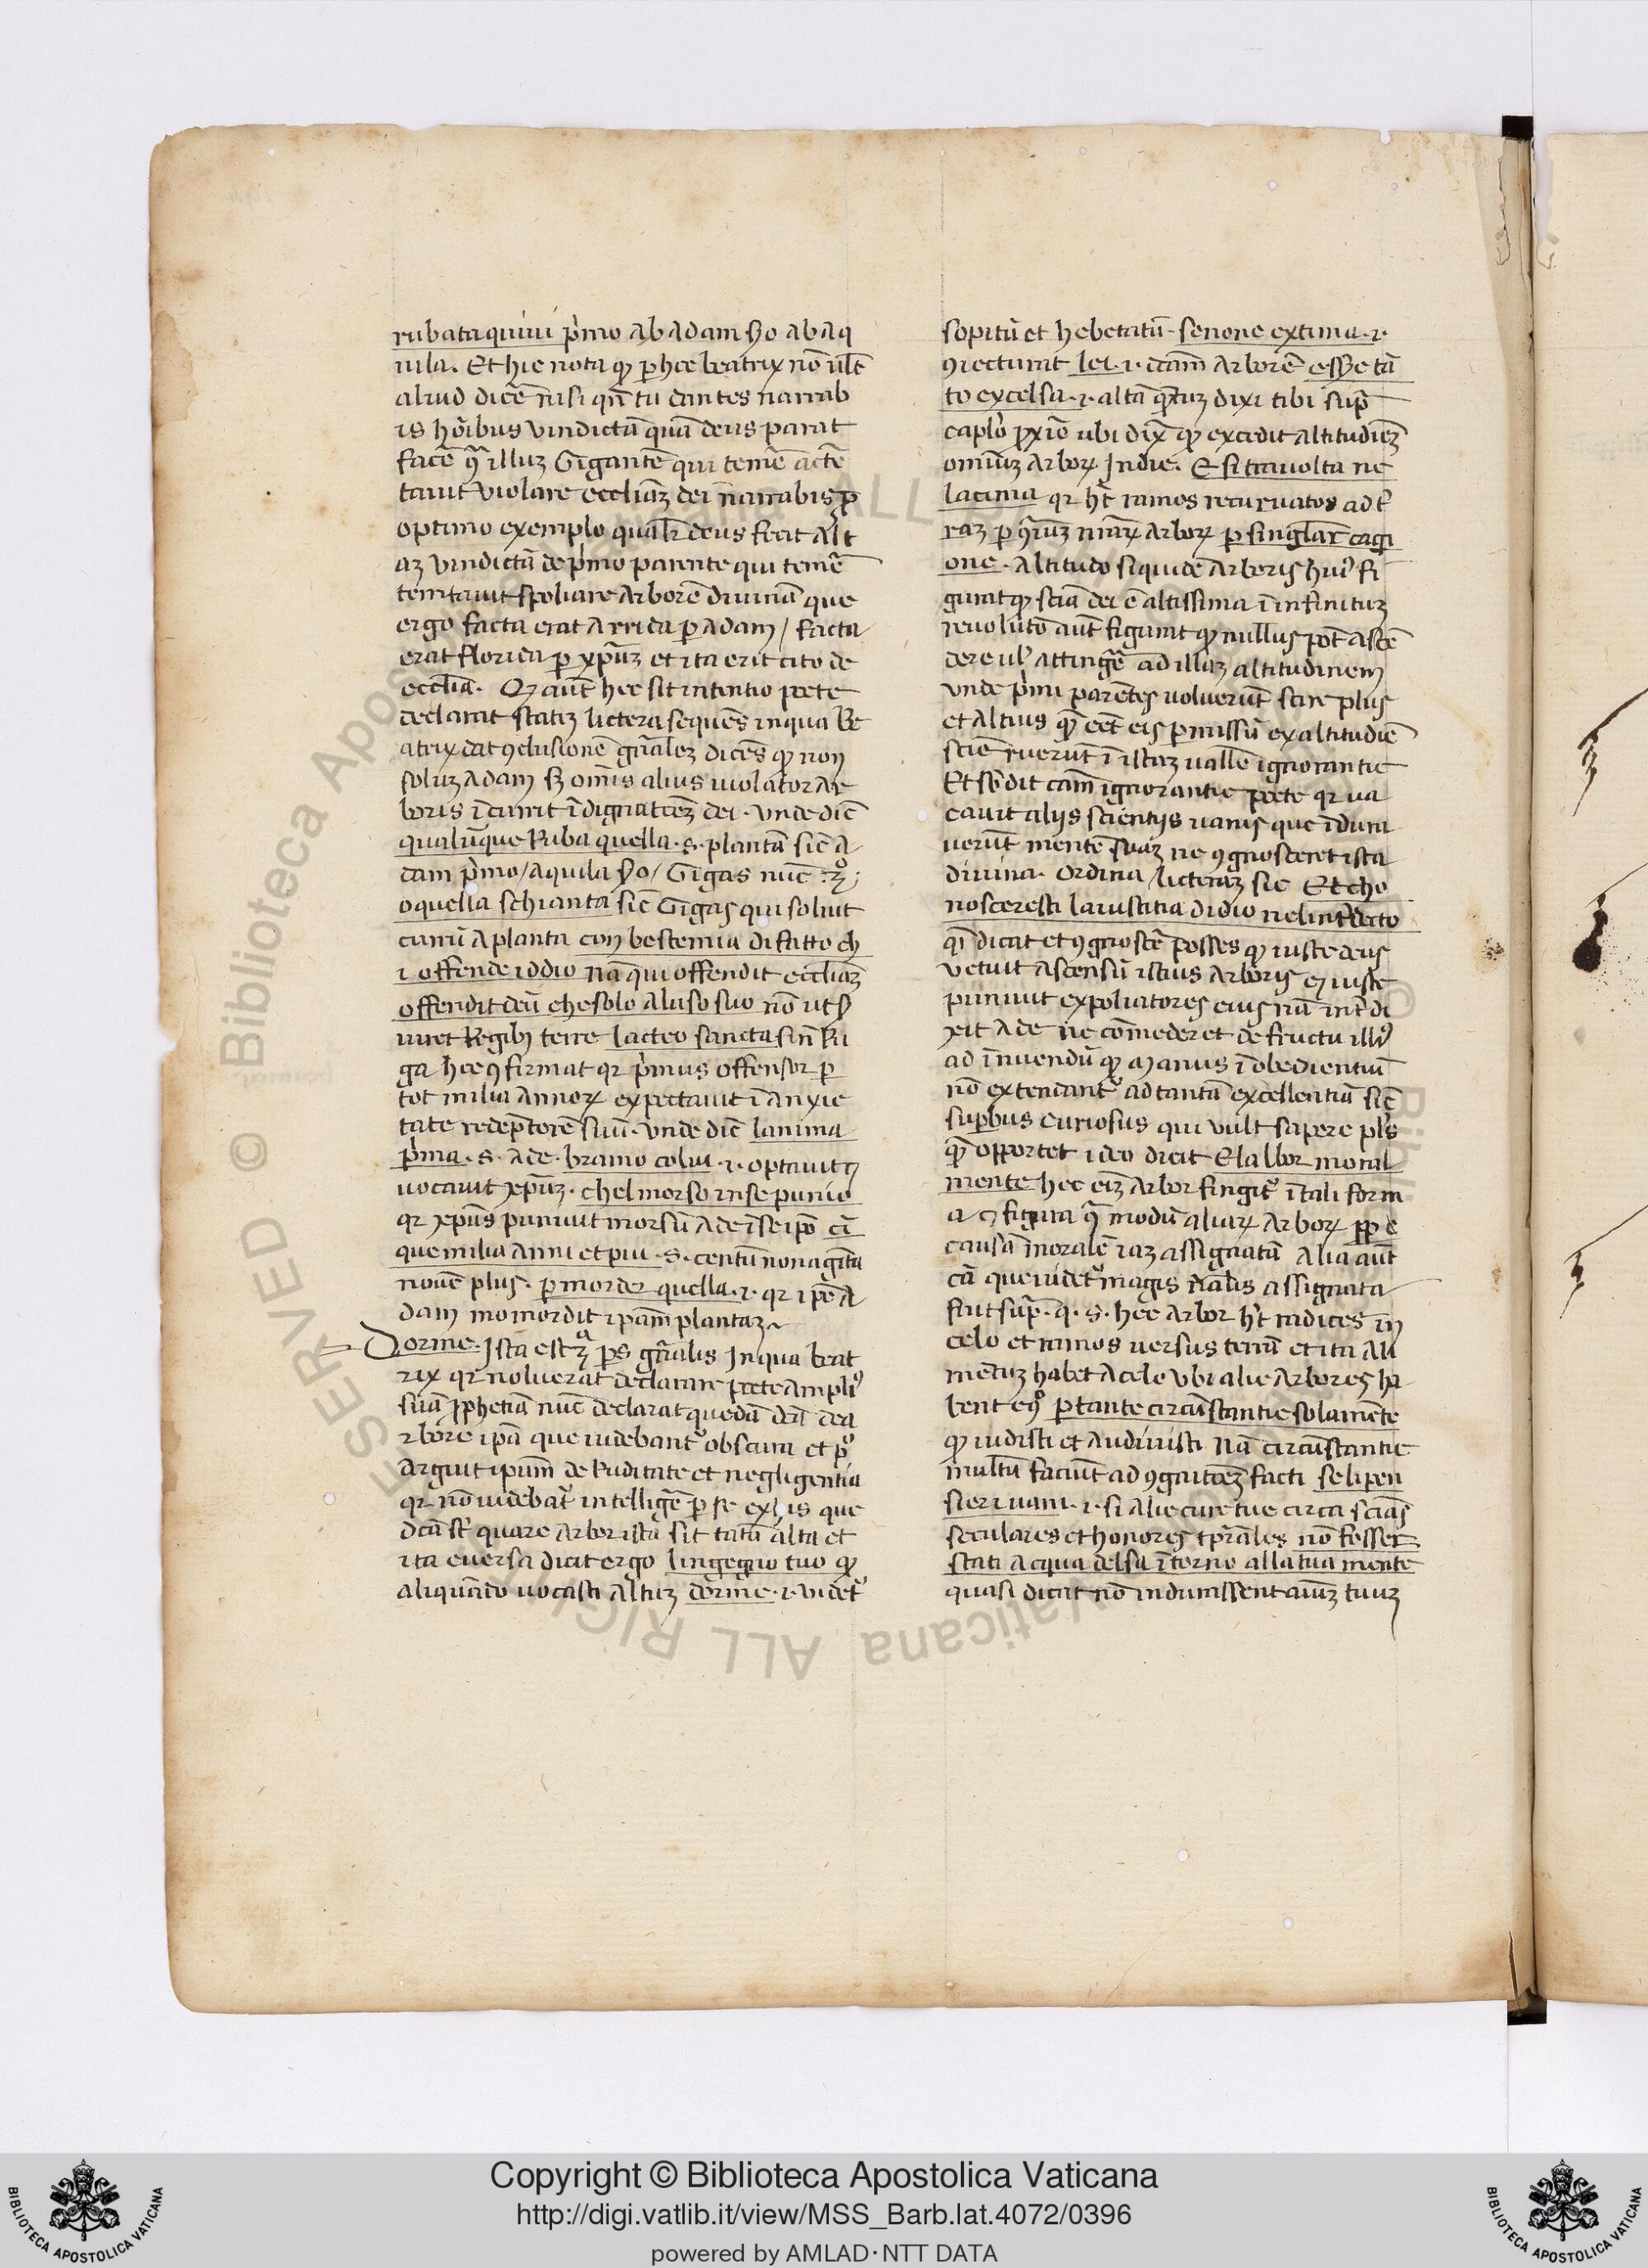 rubata quiui p̾mo ab adam s̾o ab aq
uila. Et hic nota qꝫ ꝑ hec beatrix nō uult̄
aliud dicē nisi qn̄ tu dantes narrab
is hoi̾bus vindictā quā deus parat
facē ꝯ̄ illuꝫ Gigantē qui temē actē
tauit violare eccliaꝫ dei narrabis ꝓ
optimo exemplo qualr̄ deus fecit alt
aꝫ vindictā de p̾mo parente qui temē
temtauit spoliare arborē diuinā que
ergo facta erat arrida ꝑ adam / facta
erat florida ꝑ xp̄uꝫ et ita erit cito de
eccłia. Qꝫ aut̄ hec sit intentio poete
declarat statiꝫ lictera sequēs in qua Be
atrix dat ꝯclusionē gn̄aleꝫ dicēs qꝫ non
soluꝫ adam sꝫ omīs alius uiolator ar
boris īcurrit īdignatōeꝫ dei. vnde dic̄
qualūque Ruba quella. s. plantā sic̄ a
dam p̾mo / aquila s̾o / Gigas nūc 3º;
o quella schianta sic̄ Gigas qui soluit
currū a planta con bestemia di fatto ch
i offende iddio Nā qui offendit eccliaꝫ
offendit deū che solo aluso suo nō ut s̾
uiret Regibꝫ terre la cteo sancta sin̄ Ru
ga hec ꝯfirmat qr p̾mus offensor ꝑ
tot milia annoꝝ expectauit ī anxie
tate redēptorē suū. vnde dic̄ lanima
p̾ma. s. ade. bramo colui .i. optauit ⁊
uocauit xp̄uꝫ. chel morso in se punio
qr xp̄us puniuit morsū ade ī seipō cī
que milia anni et piu. s. centū nonagīta
nouē plus. ꝑ morder quella .i. qr ip̄e a
dam momordit ip̄am plantaꝫ
Dorme. Ista est 3ᵃ ps̄ gn̄alis In qua beat
rix qr noluerat declarare poete ampliꝰ
suā ꝓphetiā nūc declarat quedā dc̄a de a
rbore ip̄a que uidebant̾ obscura et pº
arguit ip̄um de Ruditate et negligentia
qr nō uidebat̾ intelligē ꝑ se ex his que
dc̄a st̾ quare arbor ista sit tātū alta et
ita euersa dicit ergo lingegno tuo qꝫ
aliquādo uocasti altuꝫ dorme .i. uidet̾
sopitū et hebetatū. se non extima .i.
ꝯiecturat lei .i. dc̄am arborē essere tā
to excelsa .i. altā qꝫtuꝫ dixi tibi sup̄
caplo̾ ꝓxīo ubi dix̄ qꝫ excedit altitudīeꝫ
omniuꝫ arboꝝ Indie. E si trauolta ne
la cima qr ht̄ ramos recuruatos ad t̾
raꝫ ꝑ ꝯ̾riuꝫ nr̄aꝝ arboꝝ ꝑ singłar̄ cagi
one. Altitudo siquidē arboris huiꝰ fi
gurat qꝫ sciā dei ē altissima ī infinituꝫ
reuolutō aut̄ figurat qꝫ nullus pōt ascē
dere ul̾ attingē ad illaꝫ altitudinem
vnde p̾mi parētes uoluerūt scire plus
et altius qꝫ eēt eis ꝑmissū ex altitudīe
sciē ruerūt ī istaꝫ uallē ignorantie
Et sb̾dit cam̄ ignorantie poete qr ua
cauit alijs scientijs uanis que īdura
uerūt mentē suaꝫ ne ꝯgnosceret ista
diuina. Ordina / licteraꝫ sic Et cho
nosceresti la iustitia didio nelint̾decto
qi̾ dicat et ꝯgnoscē posses qꝫ iuste deus
vetuit ascensū istius arboris ⁊ iuste
puniuit expoliatores eius nā int̾di
xit ade ne cōmederet de fructu illiꝰ
ad īnuendū qꝫ manus īobedientiū
nō extendant̾ ad tantā excellentiā sic̄
suꝑbus curiosus qui vult sapere pl̾s
qꝫ opportet ideo dicit E lalbor moral
mente hec eiꝫ arbor fingit̾ ī tali form
a ⁊ figura ꝯ̄ modū aliaꝝ arboꝝ ꝓp̄ e
causā moralē iaꝫ assignatā alia aut̄
cā que uidet̾ magis rēalis assignata
fuit sup̄. q. s. hec arbor ht̄ radices in
celo et ramos uersus terrā et ita ali
mētuꝫ habet a celo vbi alie arbores ha
bent eºꝫ ꝑ tante circūstantie solamēte
qꝫ uidisti et audiuisti Nā circūstantie
multū faciūt ad ꝯgnitōeꝫ facti se li pen
sieri uani .i. si alie cure tue circa sciās
seculares et honores tp̄rales nō fosser
stati acqua delsa ītorno alla tua mente
quasi dicat nō indurassent aiuꝫ tuuꝫ
Copyright © Biblioteca Apostolica Vaticana
http://digi.vatlib.it/view/MSS_Barb.lat.4072/0396
powered by AMLAD·NTT DATA
BIBLIOTECA APOSTOLICA VATICANA
BIBLIOTECA APOSTOLICA VATICANA